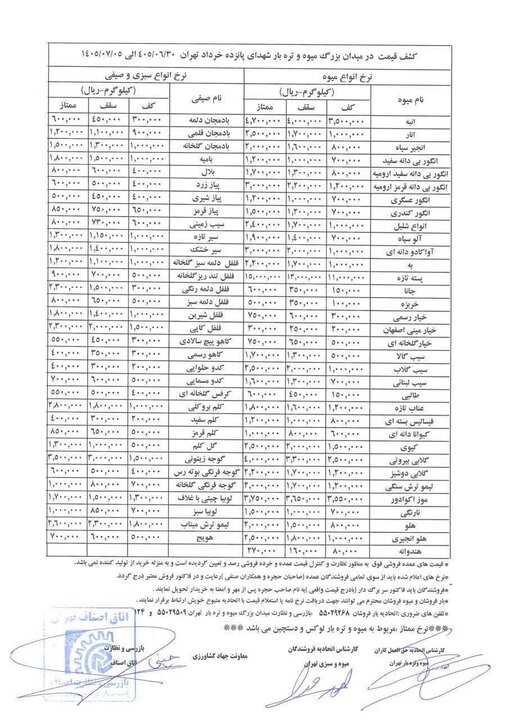 کشف قیمت در میدان بزرگ میوه و تره بار شهدای پانزده خرداد تهران ۴۰۵/۰۶/۳۰ الی ۱۴۰۵/۰۷/۰۵
نرخ انواع میوه نرخ انواع سبزی و صیفی
نام میوه (کیلوگرم-ریال) نام صیفی (کیلوگرم-ریال)
کف سقف ممتاز کف سقف ممتاز
انبه ۳,۵۰۰,۰۰۰ ۴,۰۰۰,۰۰۰ ۴,۷۰۰,۰۰۰ بادمجان دلمه ۳۰۰,۰۰۰ ۴۵۰,۰۰۰ ۶۰۰,۰۰۰
انار ۱,۰۰۰,۰۰۰ ۱,۷۰۰,۰۰۰ ۲,۵۰۰,۰۰۰ بادمجان قلمی ۹۰۰,۰۰۰ ۱,۱۰۰,۰۰۰ ۱,۲۰۰,۰۰۰
انجیر سیاه ۸۰۰,۰۰۰ ۱,۶۰۰,۰۰۰ ۲,۰۰۰,۰۰۰ بادمجان گلخانه ۱,۰۰۰,۰۰۰ ۱,۳۰۰,۰۰۰ ۱,۵۰۰,۰۰۰
انگور بی دانه سفید ۷۰۰,۰۰۰ ۱,۰۰۰,۰۰۰ ۱,۲۰۰,۰۰۰ بامیه ۱,۰۰۰,۰۰۰ ۱,۵۰۰,۰۰۰ ۱,۸۰۰,۰۰۰
انگور بی دانه سفید ارومیه ۸۰۰,۰۰۰ ۱,۳۰۰,۰۰۰ ۱,۷۰۰,۰۰۰ بلال ۴۰۰,۰۰۰ ۶۰۰,۰۰۰ ۸۰۰,۰۰۰
انگور بی دانه قرمز ارومیه ۱,۲۰۰,۰۰۰ ۲,۲۰۰,۰۰۰ ۳,۰۰۰,۰۰۰ پیاز زرد ۴۰۰,۰۰۰ ۵۰۰,۰۰۰ ۶۰۰,۰۰۰
انگور عسگری ۷۰۰,۰۰۰ ۱,۰۰۰,۰۰۰ ۱,۲۰۰,۰۰۰ پیاز شیری ۴۰۰,۰۰۰ ۴۵۰,۰۰۰ ۵۰۰,۰۰۰
انگور کندری ۷۰۰,۰۰۰ ۱,۲۰۰,۰۰۰ ۱,۵۰۰,۰۰۰ پیاز قرمز ۶۵۰,۰۰۰ ۷۵۰,۰۰۰ ۸۵۰,۰۰۰
انواع شلیل ۱,۰۰۰,۰۰۰ ۱,۷۰۰,۰۰۰ ۲,۴۰۰,۰۰۰ سیب زمینی ۶۰۰,۰۰۰ ۷۳۰,۰۰۰ ۸۰۰,۰۰۰
آلو سیاه ۷۰۰,۰۰۰ ۱,۴۰۰,۰۰۰ ۱,۹۰۰,۰۰۰ سیر تازه ۱,۰۰۰,۰۰۰ ۱,۱۵۰,۰۰۰ ۱,۳۰۰,۰۰۰
آواکادو دانه ای ۱,۰۰۰,۰۰۰ ۲,۰۰۰,۰۰۰ ۳,۰۰۰,۰۰۰ سیر خشک ۱,۰۰۰,۰۰۰ ۱,۴۰۰,۰۰۰ ۱,۸۰۰,۰۰۰
به ۱,۰۰۰,۰۰۰ ۱,۷۰۰,۰۰۰ ۲,۲۰۰,۰۰۰ فلفل دلمه سبز گلخانه ۴۰۰,۰۰۰ ۶۰۰,۰۰۰ ۷۰۰,۰۰۰
پسته تازه ۱۳,۰۰۰,۰۰۰ ۱۵,۰۰۰,۰۰۰ فلفل تند ریزگلخانه ۵۰۰,۰۰۰ ۷۰۰,۰۰۰ ۹۰۰,۰۰۰
جانا ۱۵۰,۰۰۰ ۳۵۰,۰۰۰ ۶۰۰,۰۰۰ فلفل دلمه رنگی ۱,۳۰۰,۰۰۰ ۲,۳۰۰,۰۰۰
خربزه ۱۵۰,۰۰۰ ۳۵۰,۰۰۰ ۵۰۰,۰۰۰ فلفل دلمه سبز ۵۰۰,۰۰۰ ۶۵۰,۰۰۰ ۸۰۰,۰۰۰
خیار رسمی ۳۰۰,۰۰۰ ۵۰۰,۰۰۰ ۷۰۰,۰۰۰ فلفل شیرین ۱,۰۰۰,۰۰۰ ۱,۴۰۰,۰۰۰ ۱,۸۰۰,۰۰۰
خیار مینی اصفهان ۲۰۰,۰۰۰ ۲۵۰,۰۰۰ ۳۰۰,۰۰۰ فلفل کاپی ۱,۵۰۰,۰۰۰ ۲,۰۰۰,۰۰۰ ۲,۳۰۰,۰۰۰
خیار گلخانه ای ۵۰۰,۰۰۰ ۶۵۰,۰۰۰ ۷۵۰,۰۰۰ کاهو پیچ سالادی ۳۰۰,۰۰۰ ۴۵۰,۰۰۰ ۵۵۰,۰۰۰
سیب گالا ۵۰۰,۰۰۰ ۱,۳۰۰,۰۰۰ ۱,۷۰۰,۰۰۰ کاهو رسمی ۳۰۰,۰۰۰ ۳۵۰,۰۰۰ ۴۰۰,۰۰۰
سیب گلاب ۱,۰۰۰,۰۰۰ ۲,۰۰۰,۰۰۰ ۲,۵۰۰,۰۰۰ کدو حلوایی ۲۰۰,۰۰۰ ۳۰۰,۰۰۰ ۴۰۰,۰۰۰
سیب لبنانی ۷۰۰,۰۰۰ ۱,۳۰۰,۰۰۰ ۱,۶۰۰,۰۰۰ کدو مسمایی ۵۰۰,۰۰۰ ۶۰۰,۰۰۰ ۷۰۰,۰۰۰
طالبی ۱۵۰,۰۰۰ ۴۵۰,۰۰۰ ۶۰۰,۰۰۰ کرفس گلخانه ای ۴۰۰,۰۰۰ ۵۰۰,۰۰۰ ۵۵۰,۰۰۰
عناب تازه ۱,۲۰۰,۰۰۰ ۱,۶۰۰,۰۰۰ ۱,۸۰۰,۰۰۰ کلم بروکلی ۱,۰۰۰,۰۰۰ ۱,۸۰۰,۰۰۰ ۲,۸۰۰,۰۰۰
فیسالیس بسته ای ۸۰۰,۰۰۰ ۱,۰۰۰,۰۰۰ ۱,۲۰۰,۰۰۰ کلم سفید ۲۰۰,۰۰۰ ۳۰۰,۰۰۰ ۴۰۰,۰۰۰
کیوانا دانه ای ۶۰۰,۰۰۰ ۸۰۰,۰۰۰ ۱,۰۰۰,۰۰۰ کلم قرمز ۵۰۰,۰۰۰ ۶۵۰,۰۰۰ ۸۵۰,۰۰۰
کیوی ۱,۵۰۰,۰۰۰ ۲,۰۰۰,۰۰۰ ۲,۵۰۰,۰۰۰ گل کلم ۵۰۰,۰۰۰ ۱,۰۰۰,۰۰۰ ۱,۳۰۰,۰۰۰
گلابی بیروتی ۲,۰۰۰,۰۰۰ ۳,۳۰۰,۰۰۰ ۴,۰۰۰,۰۰۰ گوجه زیتونی ۱,۵۰۰,۰۰۰ ۳,۰۰۰,۰۰۰ ۳,۵۰۰,۰۰۰
گلابی دوشیز ۱,۲۰۰,۰۰۰ ۲,۰۰۰,۰۰۰ ۲,۲۰۰,۰۰۰ گوجه فرنگی بوته رس ۴۰۰,۰۰۰ ۵۰۰,۰۰۰ ۶۰۰,۰۰۰
لیمو ترش سنگی ۱,۷۰۰,۰۰۰ ۲,۲۰۰,۰۰۰ ۲,۵۰۰,۰۰۰ گوجه فرنگی گلخانه ۷۰۰,۰۰۰ ۸۰۰,۰۰۰ ۱,۰۰۰,۰۰۰
موز اکوادور ۳,۵۵۰,۰۰۰ ۳,۶۵۰,۰۰۰ ۳,۷۵۰,۰۰۰ لوبیا چیتی با غلاف ۱,۲۰۰,۰۰۰ ۱,۵۰۰,۰۰۰ ۱,۷۰۰,۰۰۰
نارنگی ۷۰۰,۰۰۰ ۱,۲۰۰,۰۰۰ ۱,۵۰۰,۰۰۰ لوبیا سبز ۷۰۰,۰۰۰ ۸۵۰,۰۰۰ ۱,۰۰۰,۰۰۰
هلو ۸۰۰,۰۰۰ ۱,۵۰۰,۰۰۰ ۲,۰۰۰,۰۰۰ لیمو ترش میناب ۱,۸۰۰,۰۰۰ ۲,۳۰۰,۰۰۰ ۲,۶۰۰,۰۰۰
هلو انجیری ۱,۰۰۰,۰۰۰ ۲,۰۰۰,۰۰۰ ۲,۵۰۰,۰۰۰ هویج ۵۰۰,۰۰۰ ۶۰۰,۰۰۰ ۷۰۰,۰۰۰
هندوانه ۸۰,۰۰۰ ۱۶۰,۰۰۰ ۲۷۰,۰۰۰
* قیمت های عمده فروشی فوق به منظور نظارت و کنترل قیمت عمده و خرده فروشی رصد و تعیین گردیده است و به منزله خرید از تولید کننده نمی باشد.
*نرخ های اعلام شده باید از سوی تمامی فروشندگان عمده (صاحبان حجره و همکاران صنفی) رعایت و در فاکتور فروش معتبر درج گردد.
*فروشندگان باید فاکتور سر برگ دار (بادرج قیمت واقعی) به نام صاحب حجره پس از مهر و امضا به خریدار تحویل نمایند.
*بار فروشان و میوه فروشان محترم می توانند جهت دریافت نرخ نامه یا استعلام قیمت با اتحادیه متبوع خویش ارتباط برقرار نمایند.
*تلفن های ضروری: اتحادیه بار فروشان ۵۵۰۲۹۲۶۸ -بازرسی و نظارت میدان بزرگ میوه و تره بار تهران ۵۵۰۲۹۵۰۹ و ۱۲۴
*نرخ ممتاز ،مربوط به میوه و تره بار لوکس و دستچین می باشد ***
کارشناس اتحادیه حق العمل کاران میوه وتره بار تهران
کارشناس اتحادیه فروشندگان میوه و سبزی تهران
معاونت جهاد کشاورزی
بازرسی و نظارت اتاق اصناف
اتاق اصناف
بازرسی و نظارت اصناف